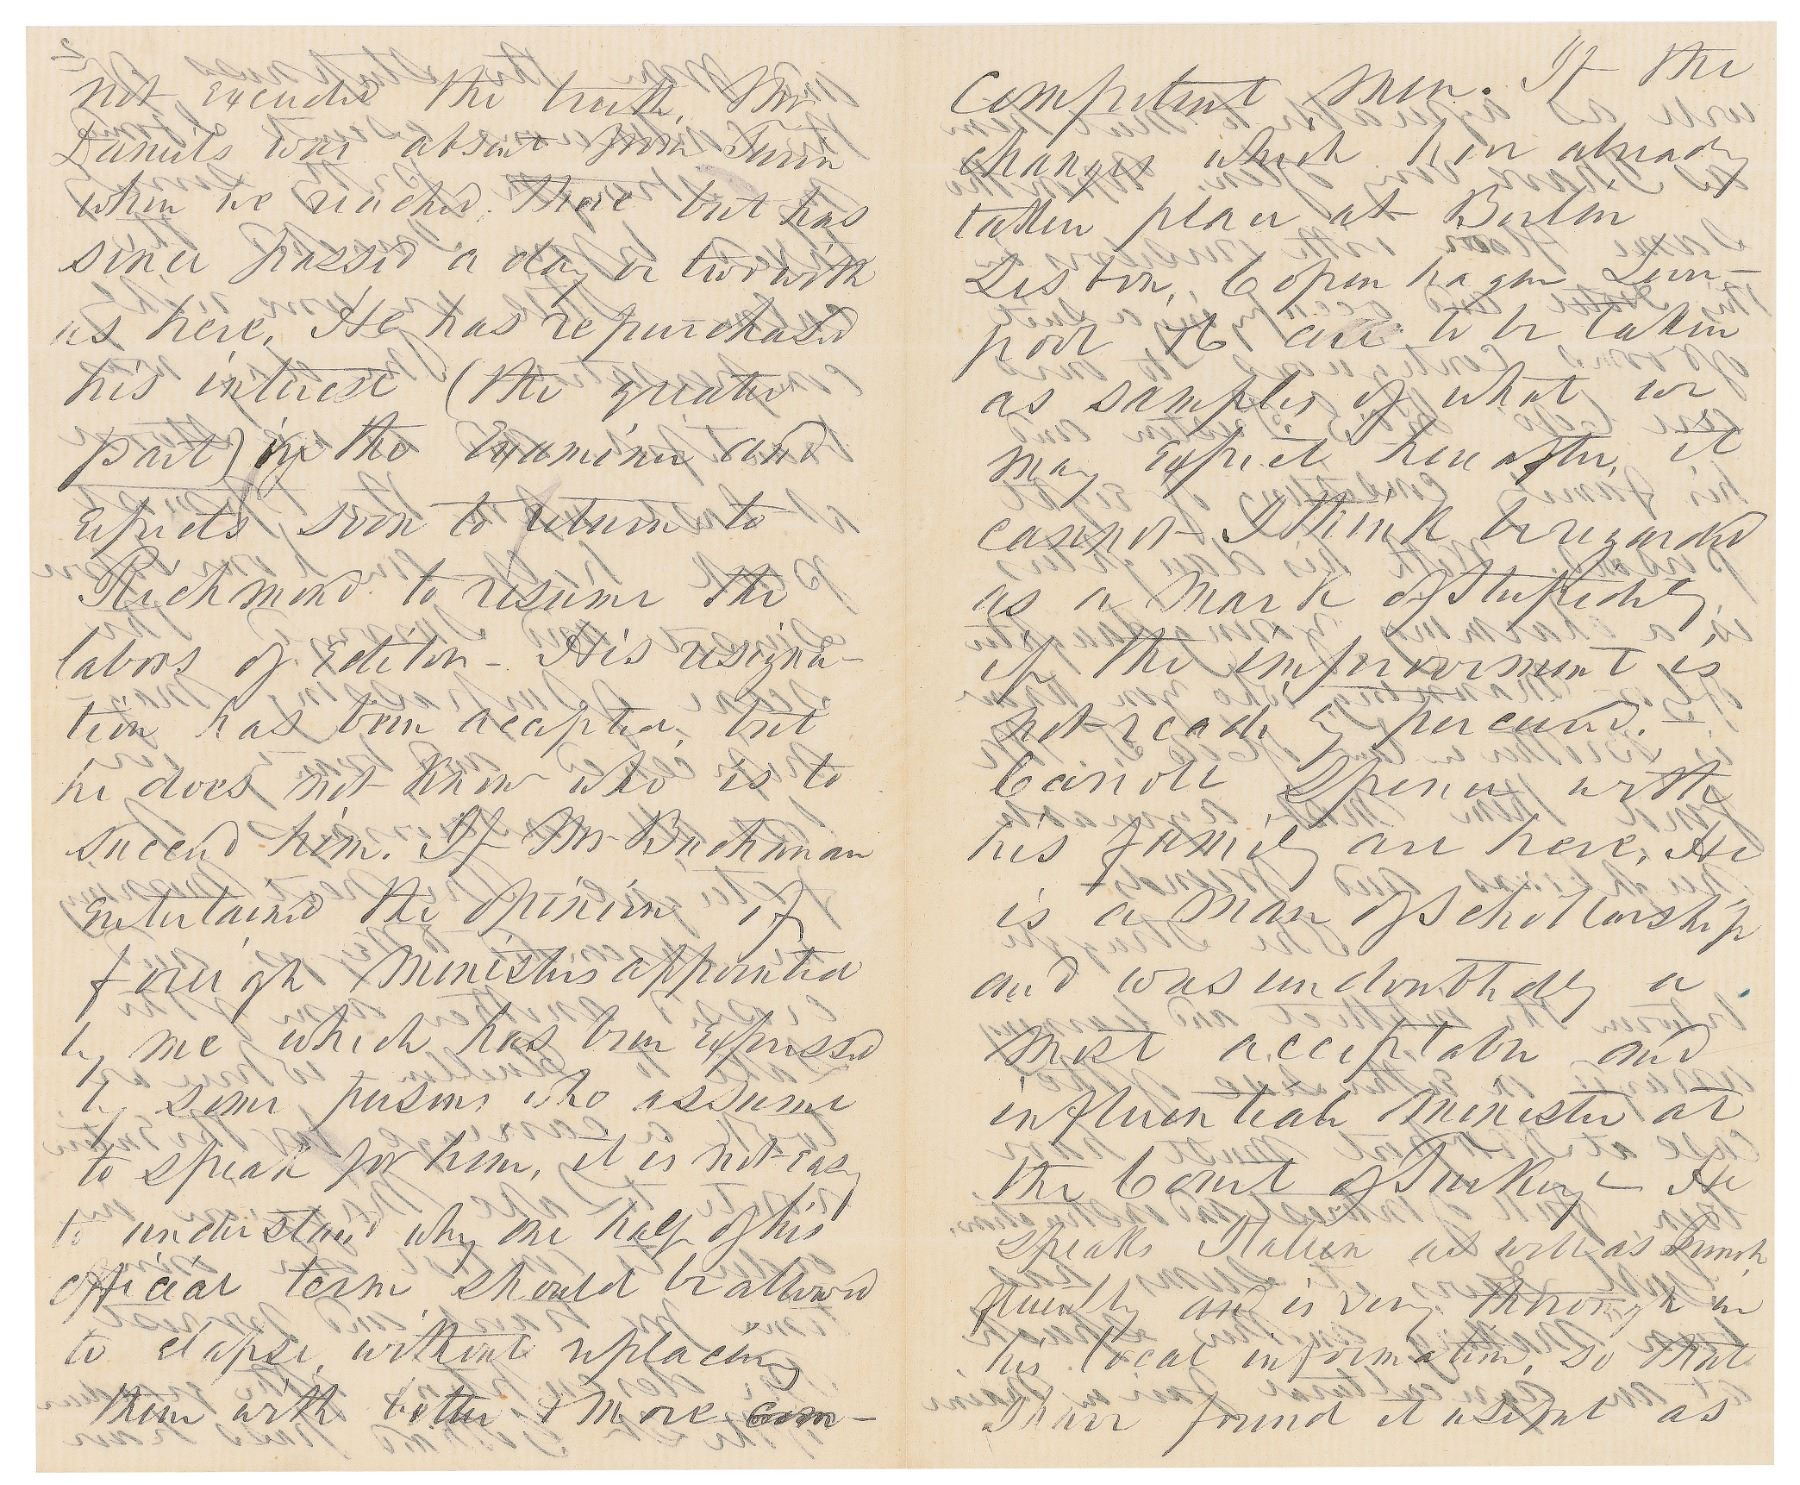 2
not exceeded the truth. Mr
Daniels was absent from Turin
when we reached there but has
since passed a day or two with
us here, He has repurchased
his interest (the greater
part) in the Examiner and
expects soon to return to
Richmond to resume the
labors of Editor – His resigna-
tion has been accepted, but
he does not know who is to
succeed him. If Mr Buchanan
entertained the opinion of
foreign Ministers appointed
by me which has been expressed
by some persons who assume
to speak for him, it is not easy
to understand why one half of his
official term should be allowed
to elapse, without replacing
them with better & more com-
competent men. If the
changes which have already
taken place at Berlin
Lisbon, Copenhagen Liver-
pool &c are to be taken
as samples of what we
may expect hereafter, it
cannot I think be regarded
as a mark of stupidity,
if the improvement is
not readily perceived.
Carroll Spence with
his family are here, He
is a man of schollarship
and was undoubtedly a
most acceptable and
influential minister at
the Court of Turkey – He
speaks Italian as well as French
fluently and is very thorough in
his local information, so that
I have found it useful as